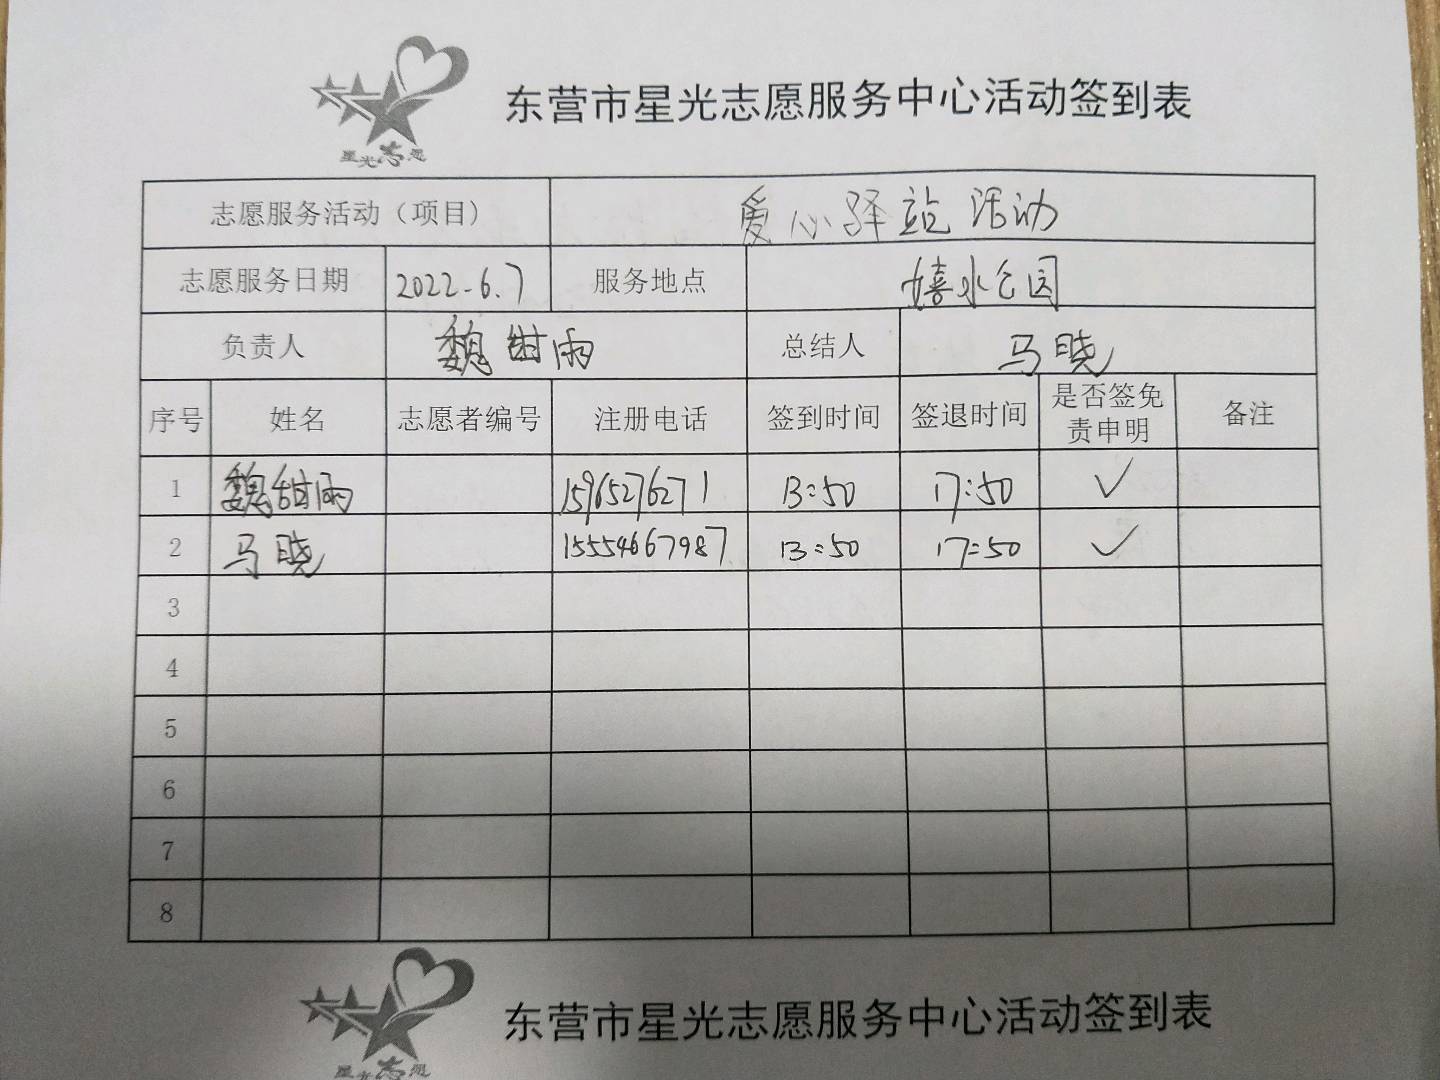 东营市星光志愿服务中心活动签到表
星光志愿
志愿服务活动（项目） 爱心驿站活动
志愿服务日期 2022.6.7 服务地点 嬉水公园
负责人 魏甜雨 总结人 马晓
序号 姓名 志愿者编号 注册电话 签到时间 签退时间 是否签免责申明 备注
1 魏甜雨 15965276271 13:50 17:50 ✓
2 马晓 15554667987 13:50 17:50 ✓
3
4
5
6
7
8
东营市星光志愿服务中心活动签到表
星光志愿